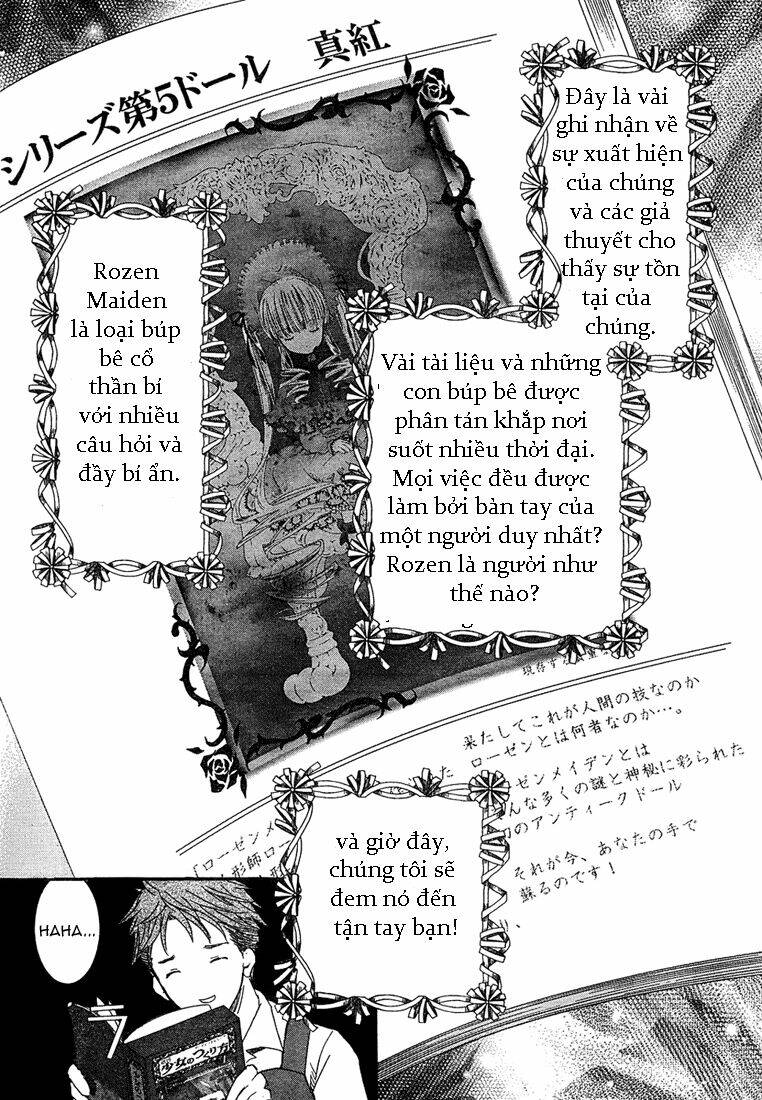 シリーズ第5ドール 真紅
Đây là vài
ghi nhận về
sự xuất hiện
của chúng
và các giả
thuyết cho
thấy sự tồn
tại của
chúng.
Rozen
Maiden
là loại búp
bê cổ
thần bí
với nhiều
câu hỏi và
đầy bí ẩn.
Vài tài liệu và những
con búp bê được
phân tán khắp nơi
suốt nhiều thời đại.
Mọi việc đều được
làm bởi bàn tay của
một người duy nhất?
Rozen là người như
thế nào?
現存する
果たしてこれが人間の技なのか
ローゼンとは何者なのか…。
ゼンメイデンとは
んな多くの謎と神秘に彩られた
のアンティークドール
それが今、あなたの手で
蘇るのです！
「ローゼンメ
形師ロー
và giờ đây,
chúng tôi sẽ
đem nó đến
tận tay bạn!
HAHA...
少女のつくり方